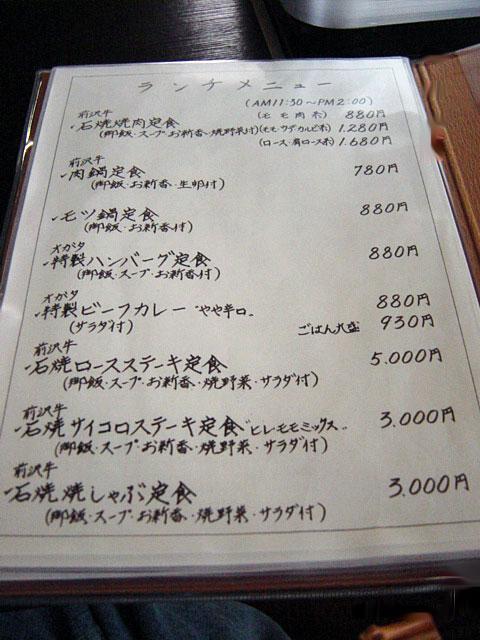 ランチメニュー
(AM11:30～PM2:00)
前沢牛
・石焼焼肉定食 (モモ肉系) 880円
(御飯・スープ・お新香・焼野菜付) (モモ・サブカルビ系) 1.280円
(ロース・肩ロース系) 1.680円
前沢牛
・肉鍋定食 780円
(御飯・お新香・生卵付)
・モツ鍋定食 880円
(御飯・お新香付)
オガタ
・特製ハンバーグ定食 880円
(御飯・スープ・お新香付)
オガタ
・特製ビーフカレー “やや辛口。 880円
(サラダ付) ごはん大盛 930円
前沢牛
・石焼ロースステーキ定食 5.000円
(御飯・スープ・お新香・焼野菜・サラダ付)
前沢牛
・石焼サイコロステーキ定食 “ヒレ・モモミックス„ 3.000円
(御飯・スープ・お新香・焼野菜・サラダ付)
前沢牛
・石焼焼しゃぶ定食 3.000円
(御飯・スープ・お新香・焼野菜・サラダ付)